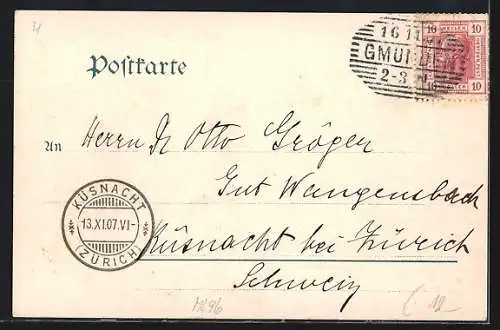 4
10 HELLER 10
16 11
GMUND
2-3 N
10 HELLER 10
Postkarte
An Herrn Dr Otto Gröger
Gut Wangensbach
Küsnacht bei Zürich
Schweiz
KÜSNACHT
13.XI.07.VI-
(ZÜRICH)
12